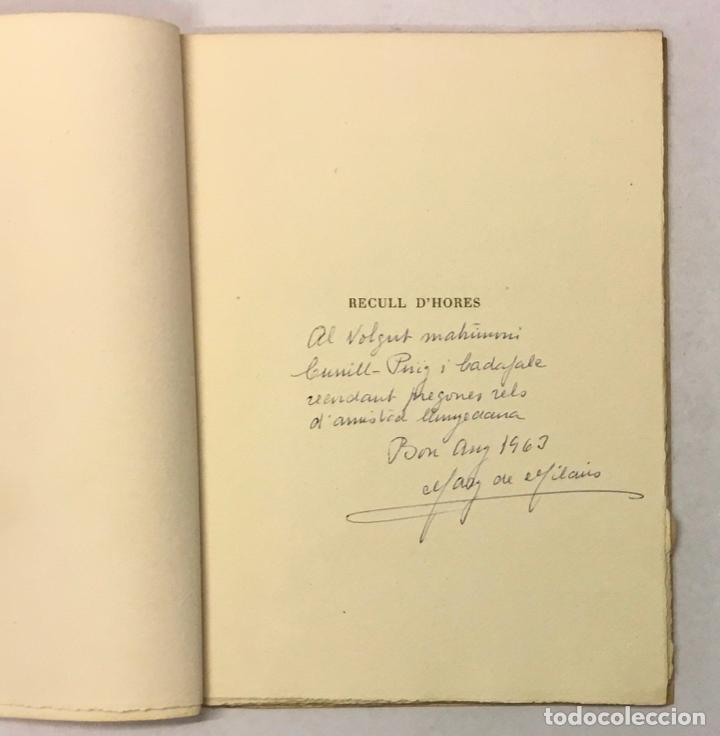 RECULL D'HORES
Al Volgut matrimoni
Cunill-Puig i Cadafalc
d'amistad llunyedana
Bon Any 1963
May de Milans
todocoleccion.net